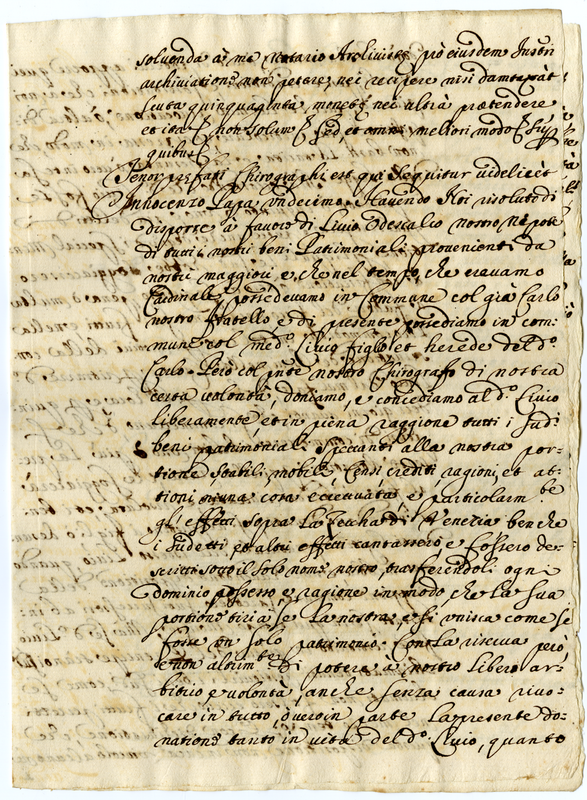 solvenda à me Notario Archivista pro eiusdem Instri
archiviatione non petere, nec recipere nisi dumtaxat
scuta quinquaginta monete nec ultra praetendere
et ita non solum sed et omni meliori modo
quibus
Tenor praefati Chirographi est qui sequitur videlicet
Innocenzo Papa undecimo. Havendo Noi risoluto di
disporre à favore di Livio Odescalco nostro Nepote
di tutti i nostri beni Patrimoniali provenienti da
nostri maggiori e, che nel tempo, che eravamo
Cardinale possedevamo in Commune col già Carlo
nostro fratello e, di presente possediamo in com-
mune col med.º Livio figlio et herede del d.º
Carlo. Però col pnte nostro Chirografo di nostra
certa volontà, doniamo, e concediamo al d.º Livio
liberamente et in piena raggione tutti i sud.ⁱ
beni patrimoniali spettanti alla nostra por-
tione stabili mobili, Censi crediti ragioni, et at-
tioni niuna cosa eccettuata e particolarm.te
gl'effetti sopra La Zeccha di Venezia benche
i sudetti et altri effetti cantassero e fossero des-
critti sotto il solo nome nostro, trasferendoli ogni
dominio possesso e, ragione in modo che la sua
portione tiri à se La nostra, e si unisca come se
fosse un solo patrimonio. Con la riserva però,
e non altrim.te di potere à nostro Libero ar-
bitrio e volontà, anche senza causa rivo-
care in tutto, ò vero in parte La presente do-
natione tanto in vita del d.º Livio, quanto